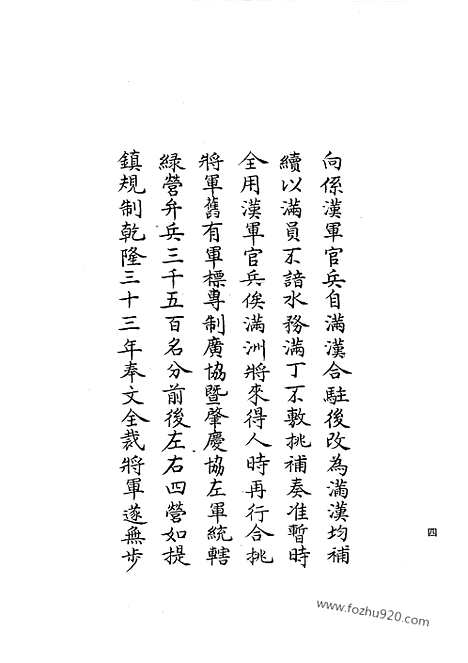 向係漢軍官兵自滿漢合駐後改為滿漢均補
續以滿員不諳水務滿丁不敷挑補奏准暫時
全用漢軍官兵俟滿洲將來得人時再行合挑
將軍舊有軍標專制廣協暨肇慶協左軍統轄
綠營弁兵三千五百名分前後左右四營如提
鎮規制乾隆三十三年奉文全裁將軍遂無步
四
www.fozhu920.com